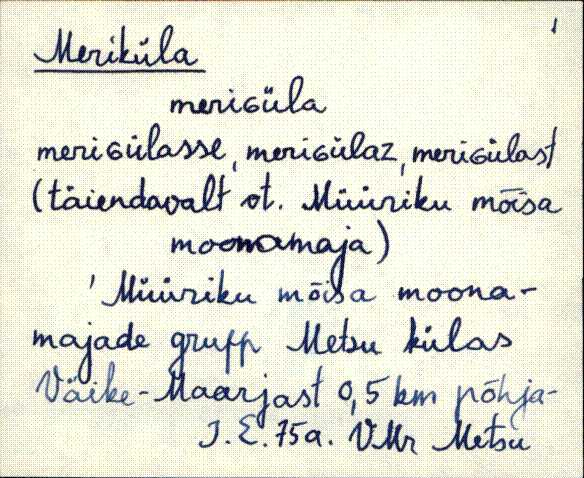 1
Meriküla
meriɢüla
meriɢülasse, meriɢülaz, meriɢülast
(täiendavalt vt. Müüriku mõisa
moonamaja)
' Müüriku mõisa moona-
majade grupp Metsu külas
Väike-Maarjast 0,5 km põhja-
J.E. 75a. VMr Metsu